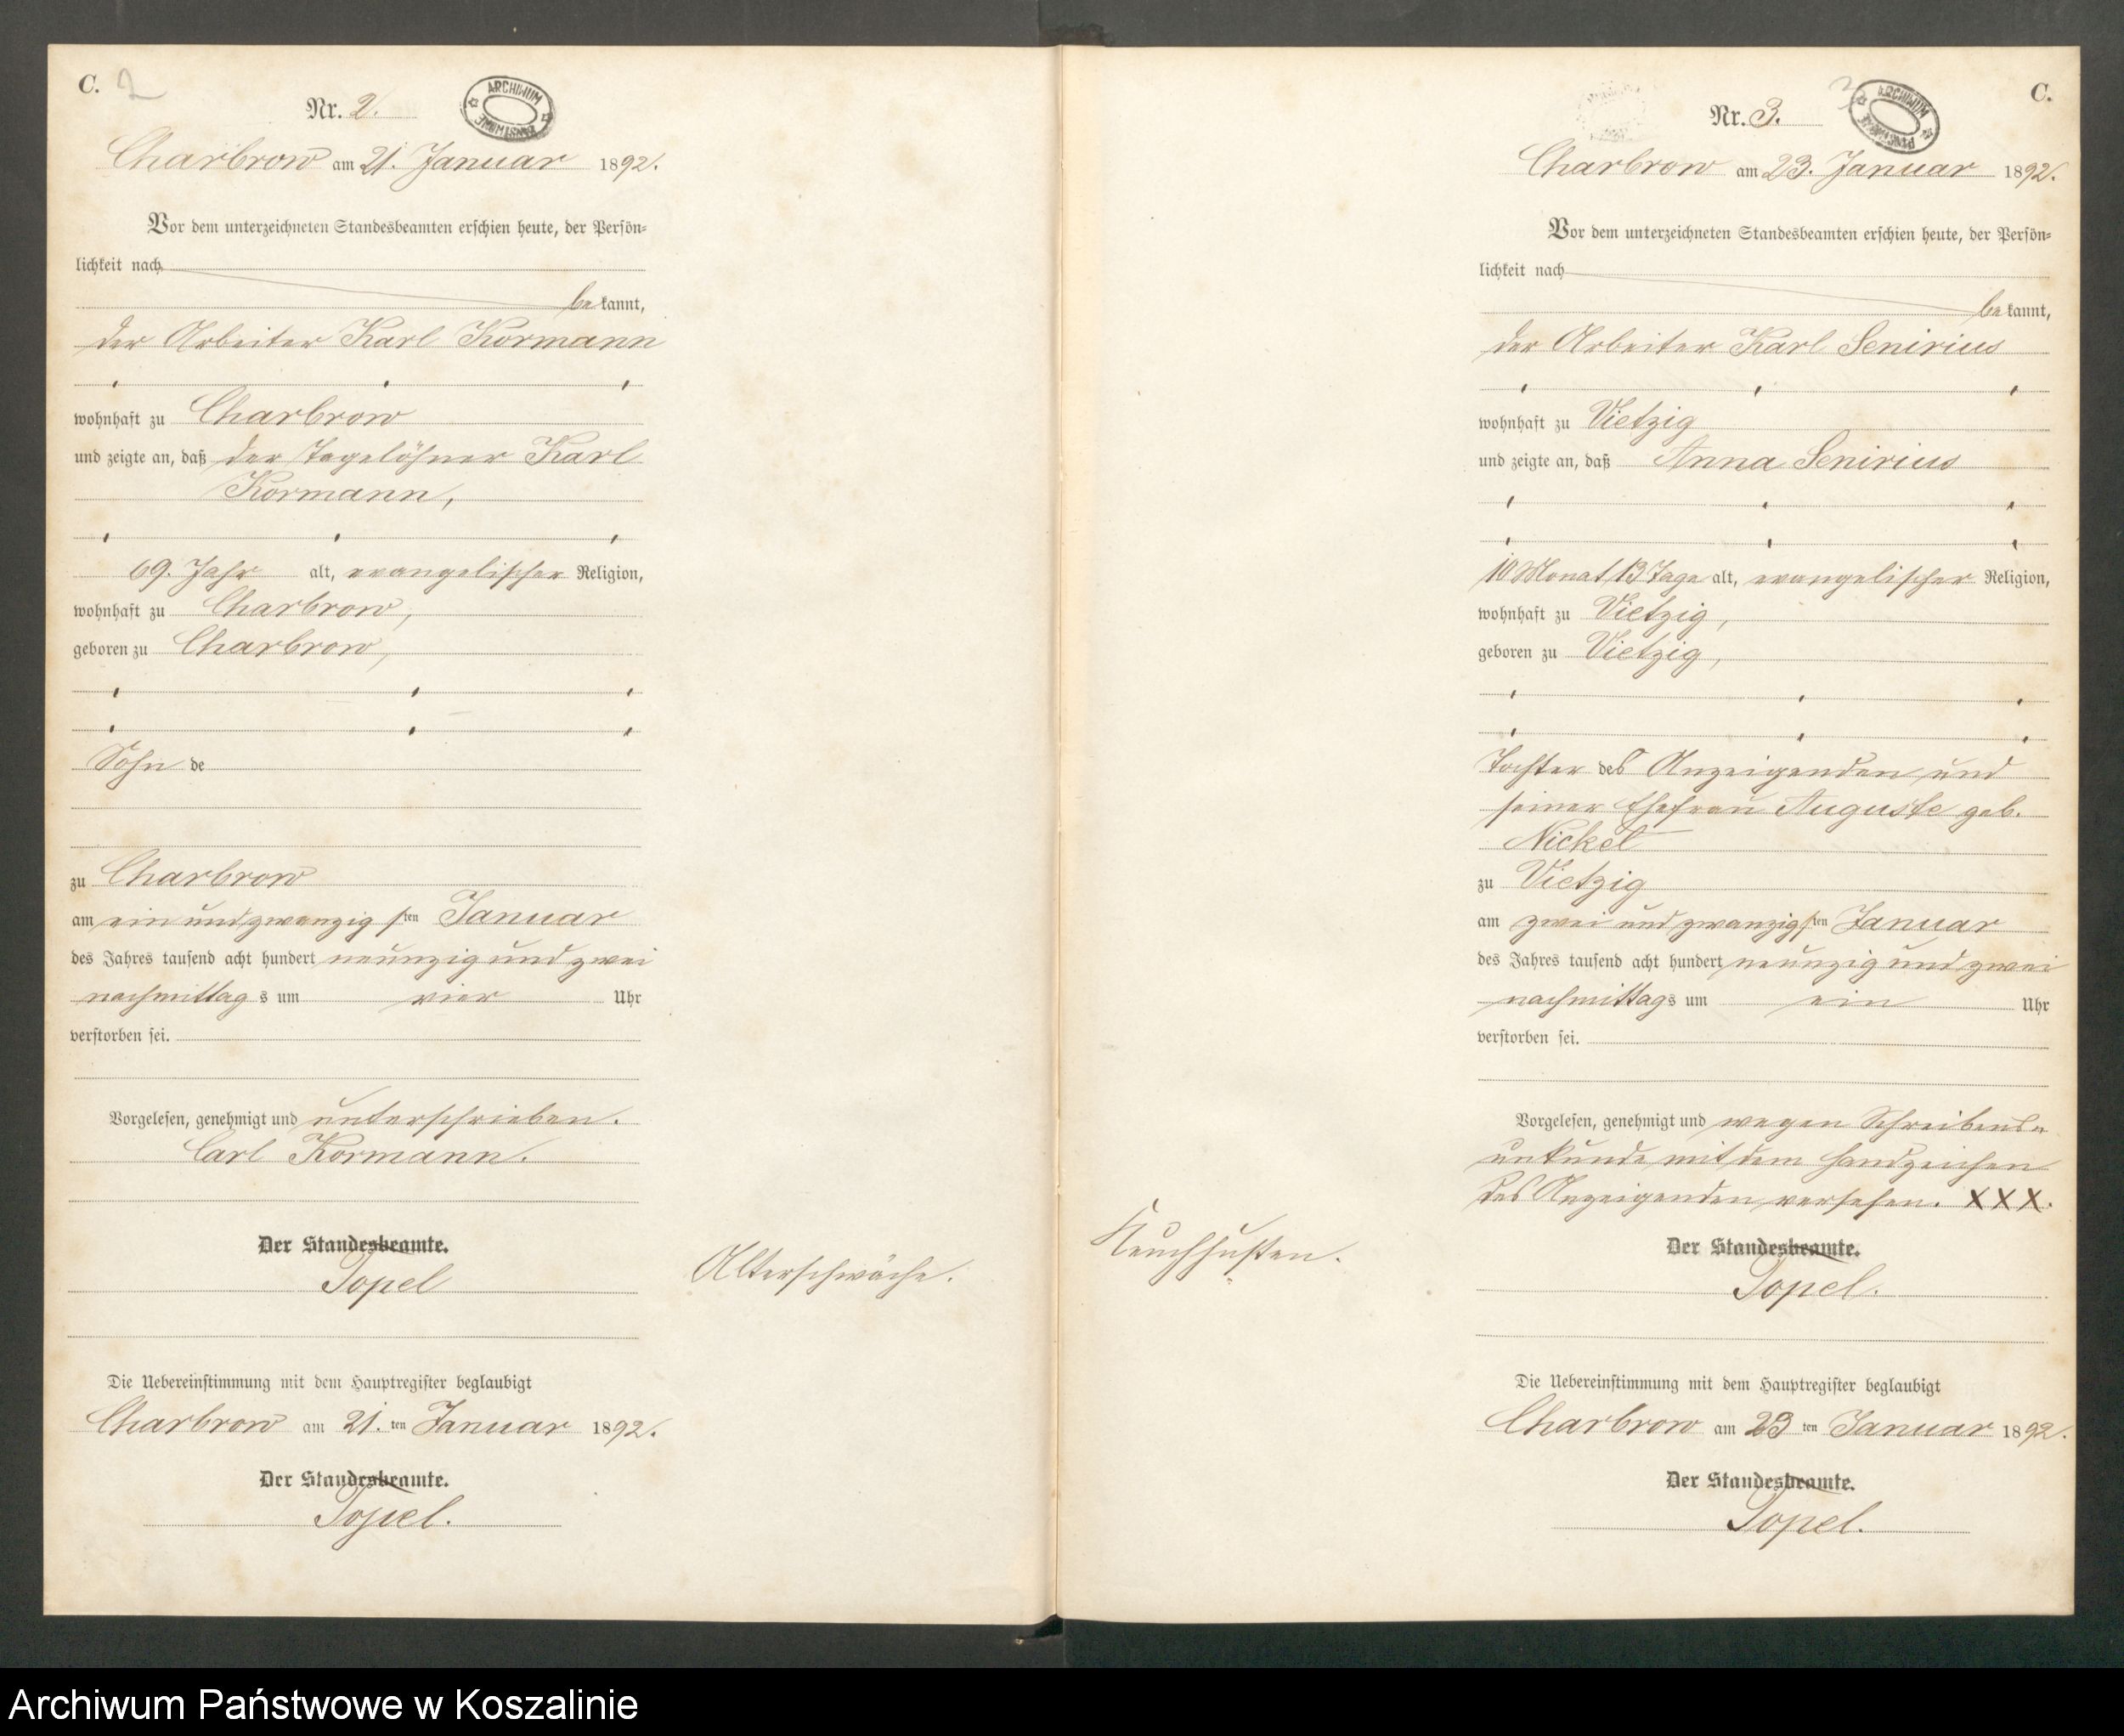 C. 2
Nr. 2.
ARCHIWUM PAŃSTWOWE
Charbrow am 21. Januar 1892.
Vor dem unterzeichneten Standesbeamten erschien heute, der Persön-
lichkeit nach
be kannt,
der Arbeiter Karl Kormann
wohnhaft zu Charbrow
und zeigte an, daß der Tagelöhner Karl
Kormann,
69. Jahr alt, evangelischer Religion,
wohnhaft zu Charbrow,
geboren zu Charbrow,
Sohn de
zu Charbrow
am ein und zwanzig sten Januar
des Jahres tausend acht hundert neunzig und zwei
nachmittag s um vier Uhr
verstorben sei.
Vorgelesen, genehmigt und unterschrieben.
Carl Kormann.
Der Standesbeamte.
Topel
Alterschwäche.
Die Uebereinstimmung mit dem Hauptregister beglaubigt
Charbrow am 21. ten Januar 1892.
Der Standesbeamte.
Topel.
C.
3
Nr. 3.
ARCHIWUM PAŃSTWOWE
Charbrow am 23. Januar 1892.
Vor dem unterzeichneten Standesbeamten erschien heute, der Persön-
lichkeit nach
be kannt,
der Arbeiter Karl Senirius
wohnhaft zu Vietzig
und zeigte an, daß Anna Senirius
10 Monat, 13 Tage alt, evangelischer Religion,
wohnhaft zu Vietzig,
geboren zu Vietzig,
Tochter des Anzeigenden und
seiner Ehefrau Auguste geb.
Nickel
zu Vietzig
am zwei und zwanzigsten Januar
des Jahres tausend acht hundert neunzig und zwei
nachmittags um ein Uhr
verstorben sei.
Vorgelesen, genehmigt und wegen Schreibens-
unkunde mit dem Handzeichen
des Anzeigenden versehen. XXX.
Keuchhusten.
Der Standesbeamte.
Topel.
Die Uebereinstimmung mit dem Hauptregister beglaubigt
Charbrow am 23 ten Januar 1892.
Der Standesbeamte.
Topel.
Archiwum Państwowe w Koszalinie